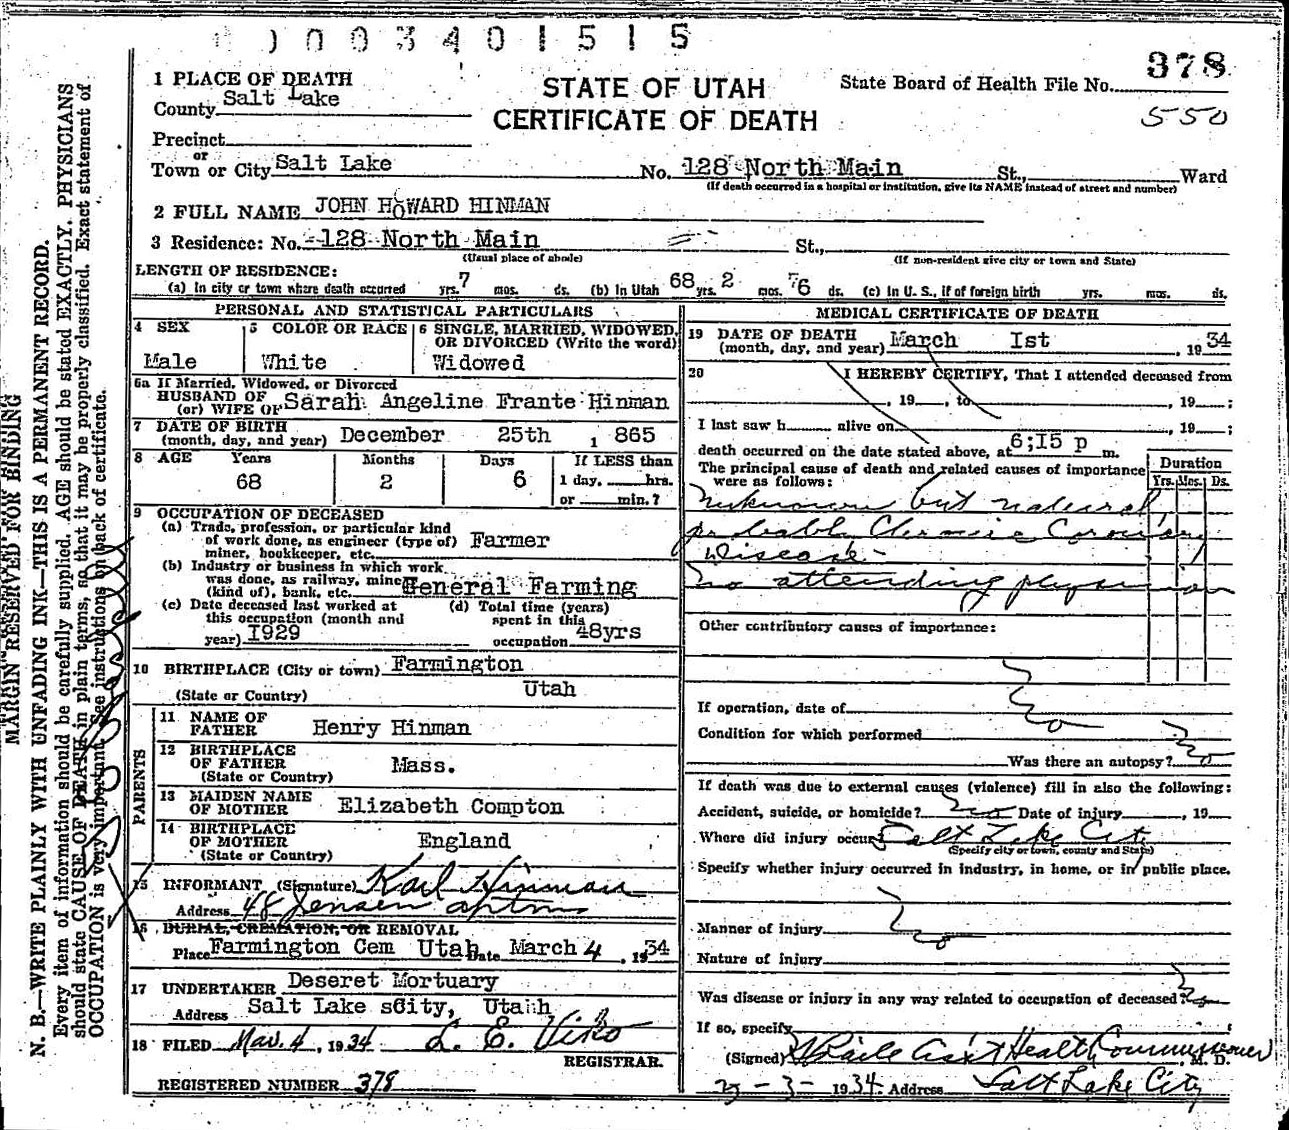 0003401515
378
550
STATE OF UTAH
CERTIFICATE OF DEATH
State Board of Health File No.
1 PLACE OF DEATH
County Salt Lake
Precinct
or
Town or City Salt Lake No. 128 North Main St., Ward
(If death occurred in a hospital or institution, give its NAME instead of street and number)
2 FULL NAME JOHN HOWARD HINMAN
3 Residence: No. 128 North Main St.,
(Usual place of abode) (If non-resident give city or town and State)
LENGTH OF RESIDENCE:
(a) In city or town where death occurred yrs. 7 mos. ds. (b) In Utah 68 yrs. 2 mos. 6 ds. (c) In U. S., if of foreign birth yrs. mos. ds.
PERSONAL AND STATISTICAL PARTICULARS
4 SEX
Male
5 COLOR OR RACE
White
6 SINGLE, MARRIED, WIDOWED,
OR DIVORCED (Write the word)
Widowed
6a If Married, Widowed, or Divorced
HUSBAND OF
(or) WIFE OF Sarah Angeline Frante Hinman
7 DATE OF BIRTH
(month, day, and year) December 25th 1 865
8 AGE Years Months Days If LESS than
68 2 6 1 day, hrs.
or min.?
9 OCCUPATION OF DECEASED
(a) Trade, profession, or particular kind
of work done, as engineer (type of) Farmer
miner, bookkeeper, etc.
(b) Industry or business in which work
was done, as railway, mine
(kind of), bank, etc. General Farming
(c) Date deceased last worked at
this occupation (month and
year) I929
(d) Total time (years)
spent in this
occupation 48yrs
10 BIRTHPLACE (City or town) Farmington
(State or Country) Utah
PARENTS
11 NAME OF
FATHER Henry Hinman
12 BIRTHPLACE
OF FATHER Mass.
(State or Country)
13 MAIDEN NAME
OF MOTHER Elizabeth Compton
14 BIRTHPLACE
OF MOTHER England
(State or Country)
15 INFORMANT (Signature) Karl Hinman
Address 48 Jensen aptms
16 BURIAL, CREMATION, OR REMOVAL
Place Farmington Cem Utah Date March 4, 1934
17 UNDERTAKER Deseret Mortuary
Address Salt Lake s6ity, Utahh
18 FILED Mar. 4, 1934 L. E. Viko
REGISTRAR.
REGISTERED NUMBER 378
MEDICAL CERTIFICATE OF DEATH
19 DATE OF DEATH
(month, day, and year) March Ist, 1934
20 I HEREBY CERTIFY, That I attended deceased from
, 19 , to , 19 ;
I last saw h alive on , 19 ;
death occurred on the date stated above, at 6;I5 p m.
The principal cause of death and related causes of importance
were as follows:
Duration
Yrs. Mos. Ds.
unknown but natural,
probably Chronic Coronary
Disease -
No attending physician
Other contributory causes of importance:
If operation, date of No
Condition for which performed
Was there an autopsy? No
If death was due to external causes (violence) fill in also the following:
Accident, suicide, or homicide? No Date of injury , 19
Where did injury occur? Salt Lake City
(Specify city or town, county and State)
Specify whether injury occurred in industry, in home, or in public place.
Manner of injury No
Nature of injury
Was disease or injury in any way related to occupation of deceased? No
If so, specify
(Signed) Ass't Health Commissioner, M. D.
3 - 1934 Address Salt Lake City
MARGIN RESERVED FOR BINDING
N. B.—WRITE PLAINLY WITH UNFADING INK—THIS IS A PERMANENT RECORD.
Every item of information should be carefully supplied. AGE should be stated EXACTLY. PHYSICIANS
should state CAUSE OF DEATH in plain terms, so that it may be properly classified. Exact statement of
OCCUPATION is very important. See instructions on back of certificate.